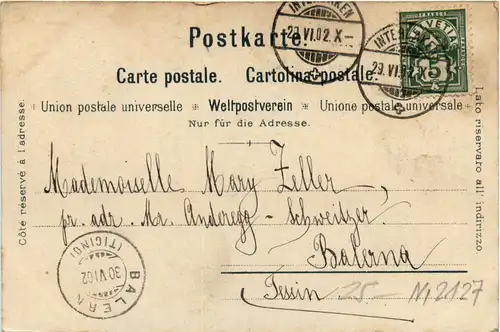 Postkarte.
Carte postale. Cartolina postale.
Union postale universelle Weltpostverein Unione postale universale
Nur für die Adresse.
Côté réservé à l'adresse.
Lato riservaro all indirizzo.
INTERLAKEN
29.VI.02.X-
INTERLAKEN
29.VI.02
HELVETIA
FRANCO
5
Mademoiselle Mary Zeller,
pr. adr. Mr. Anderegg-Schweitzer,
Balerna
Tessin
25.- N, 2127
BALERNA
(TICINO)
30.VI.02